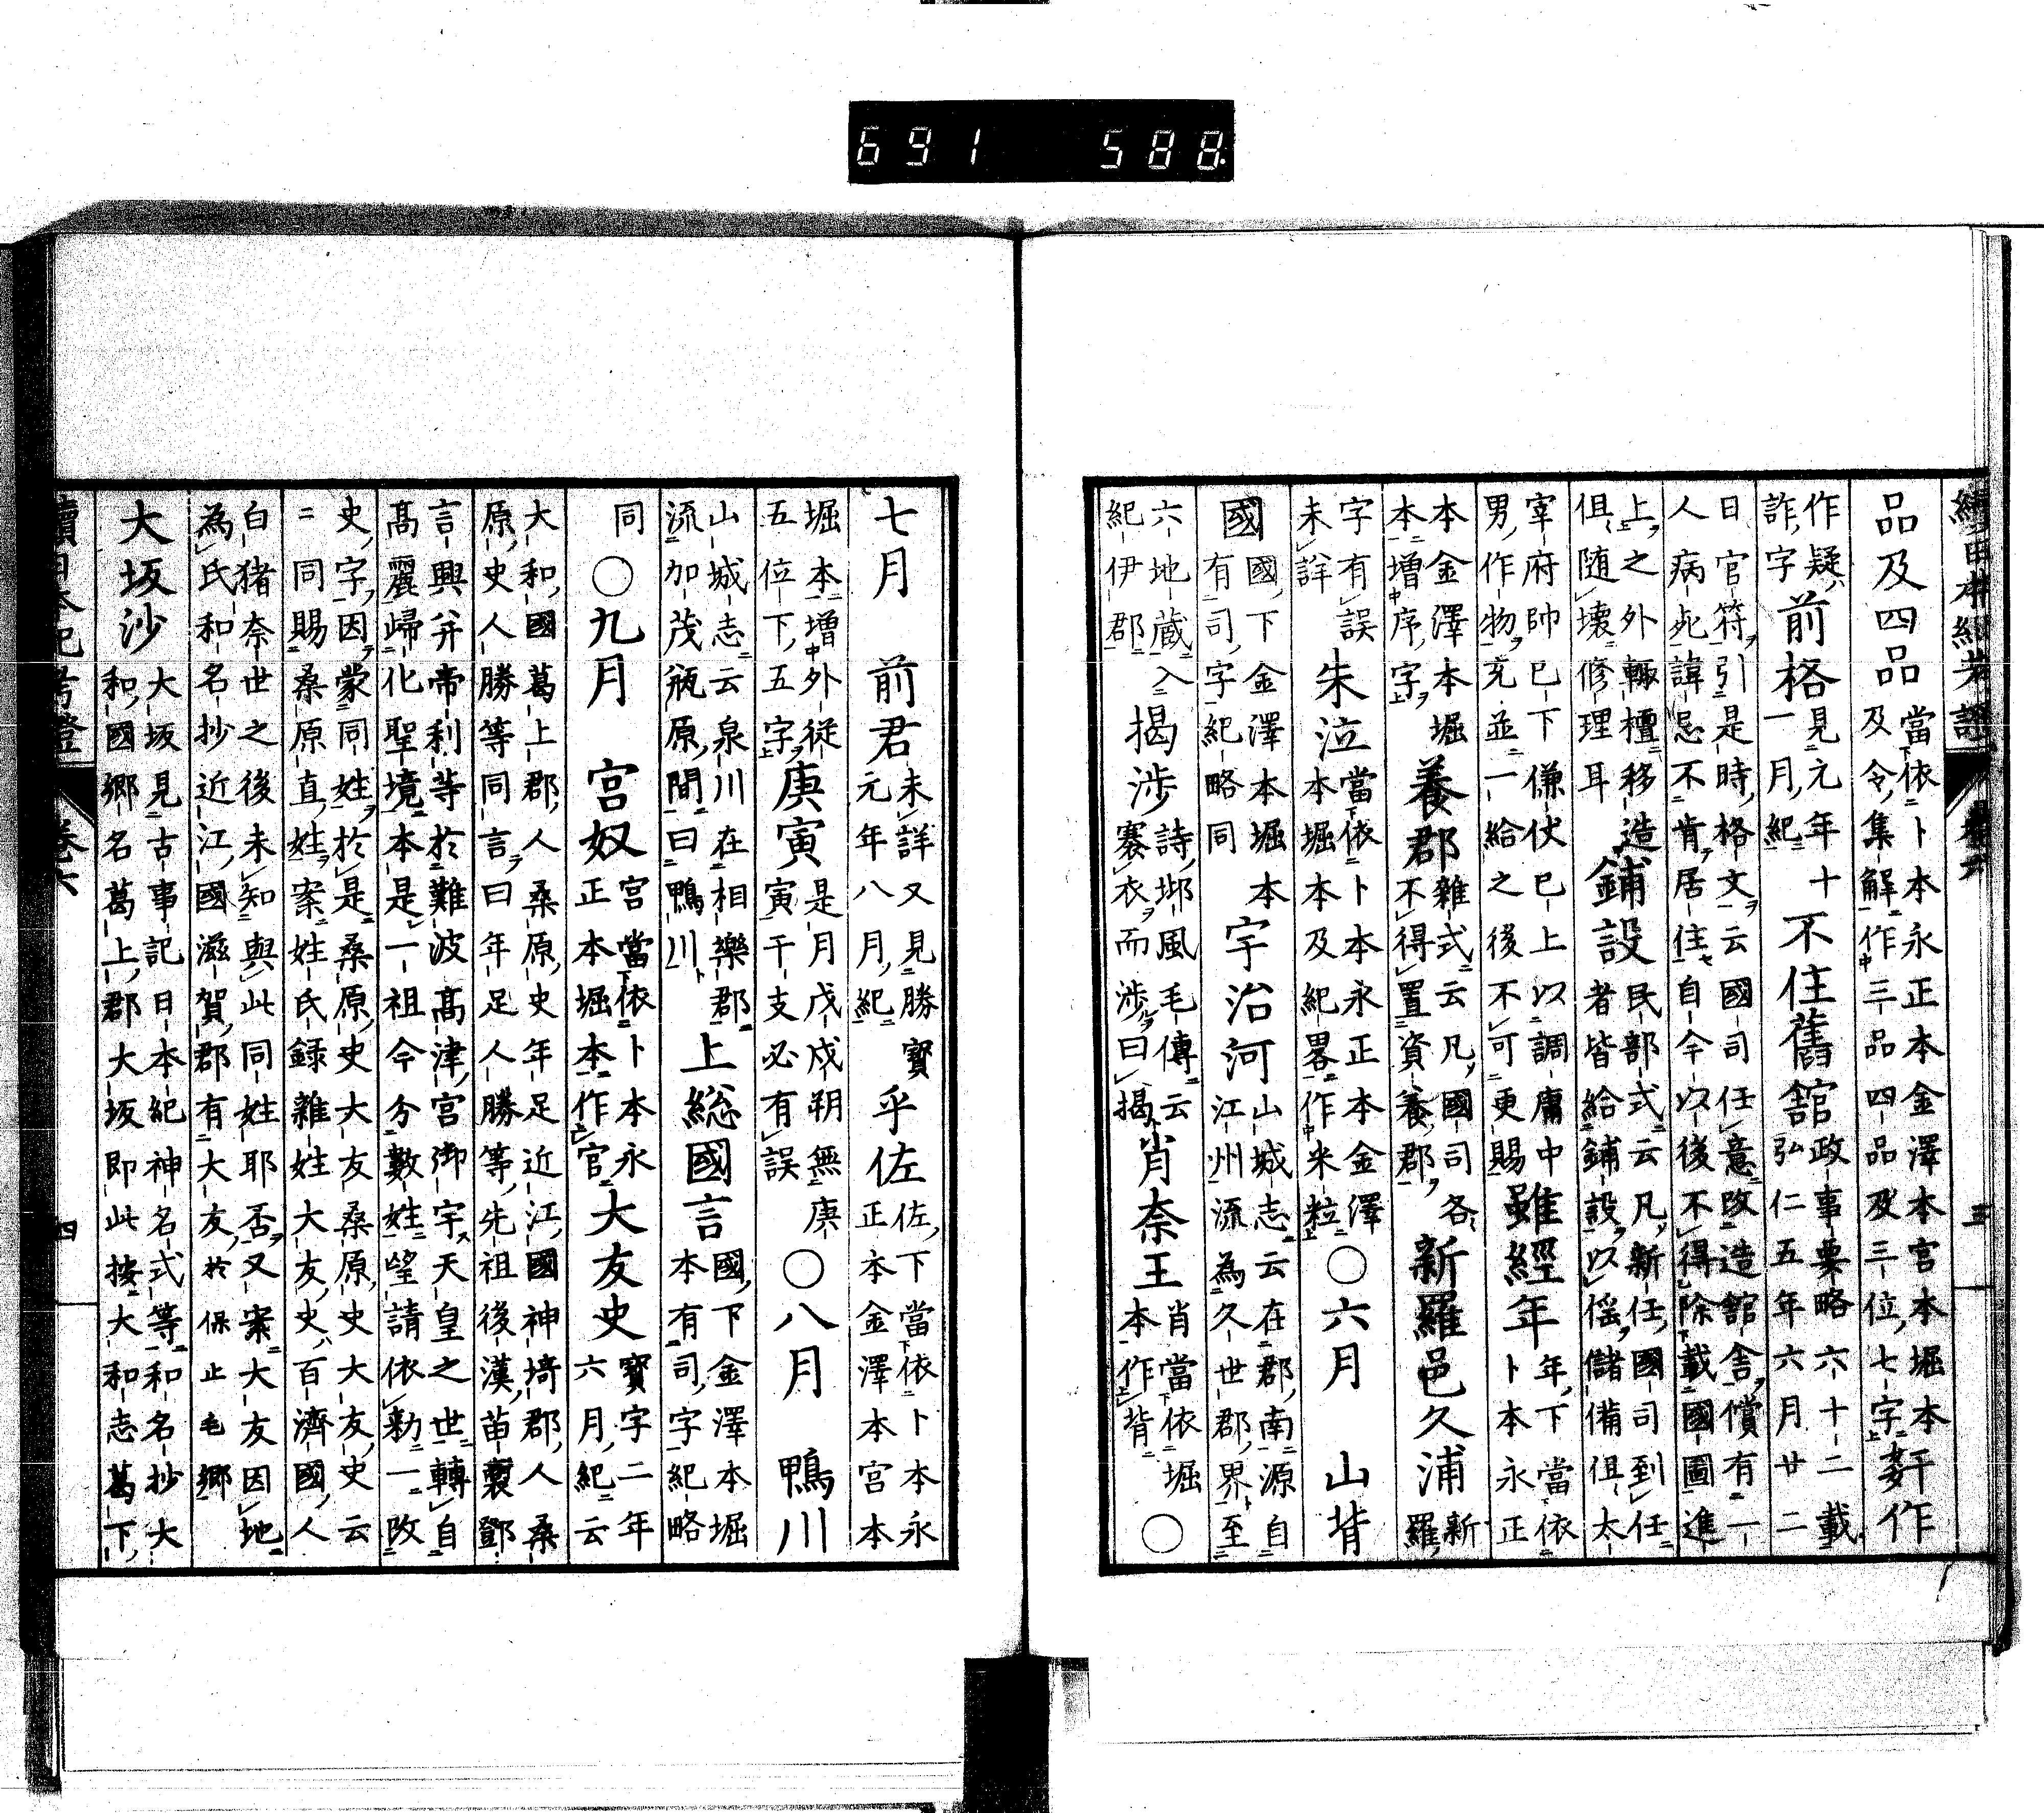 691 588
續日本紀考證 卷六 三
品及四品 當依卜本永正本金澤本宮本堀本
及令集解作三品四品及三位七字 姧作
作疑
詐字 前格 見元年十
一月紀 不住舊舘 政事要略六十二載
弘仁五年六月廿二
日官符引是時格文云國司任意改造舘舎償有一
人病死諱忌不肯居住自今以後不得除載國圖進
上之外輙擅移造
但随壊修理耳 鋪設 民部式云凡新任國司到任
者皆給鋪設以傜儲備但太
宰府帥巳下傔仗巳上以調庸中
男作物充並一給之後不可更賜 雖經年 年下當依
卜本永正
本金澤本堀
本增序字 養郡 雜式云凡國司各
不得置資養郡 新羅邑久浦 新
羅
字有誤
未詳 朱泣 當依卜本永正本金澤
本堀本及紀畧作米粒 ○六月 山背
國 國下金澤本堀本
有司字紀略同 宇治河 山城志云在郡南源自
江州流為久世郡界至
六地蔵入
紀伊郡 揭渉 詩邶風毛傳云
褰衣而渉曰揭 肖奈王 肖當依堀
本作背 ○
七月 前君 未詳又見勝寳
元年八月紀 乎佐 佐下當依卜本永
正本金澤本宮本
堀本增外従
五位下五字 庚寅 是月戊戌朔無庚
寅干支必有誤 ○八月 鴨川
山城志云泉川在相樂郡
流加茂瓶原間曰鴨川 上総國言 國下金澤本堀
本有司字紀略
同 ○九月 宮奴 宮當依卜本永
正本堀本作官 大友史 寳字二年
六月紀云
大和國葛上郡人桑原史年足近江國神埼郡人桑
原史人勝等同言曰年足人勝等先祖後漢苗裔鄧
言興并帝利等於難波高津宮御宇天皇之世轉自
髙麗歸化聖境本是一祖今分數姓望請依勅一改
史字因蒙同姓於是桑原史大友桑原史大友史云
二同賜桑原直姓案姓氏録雜姓大友史百濟國人
白猪奈世之後未知與此同姓耶否又案大友因地
為氏和名抄近江國滋賀郡有大友於保止毛郷
大坂沙 大坂見古事記日本紀神名式等和名抄大
和國郷名葛上郡大坂即此按大和志葛下
續日本紀考證 卷六 四